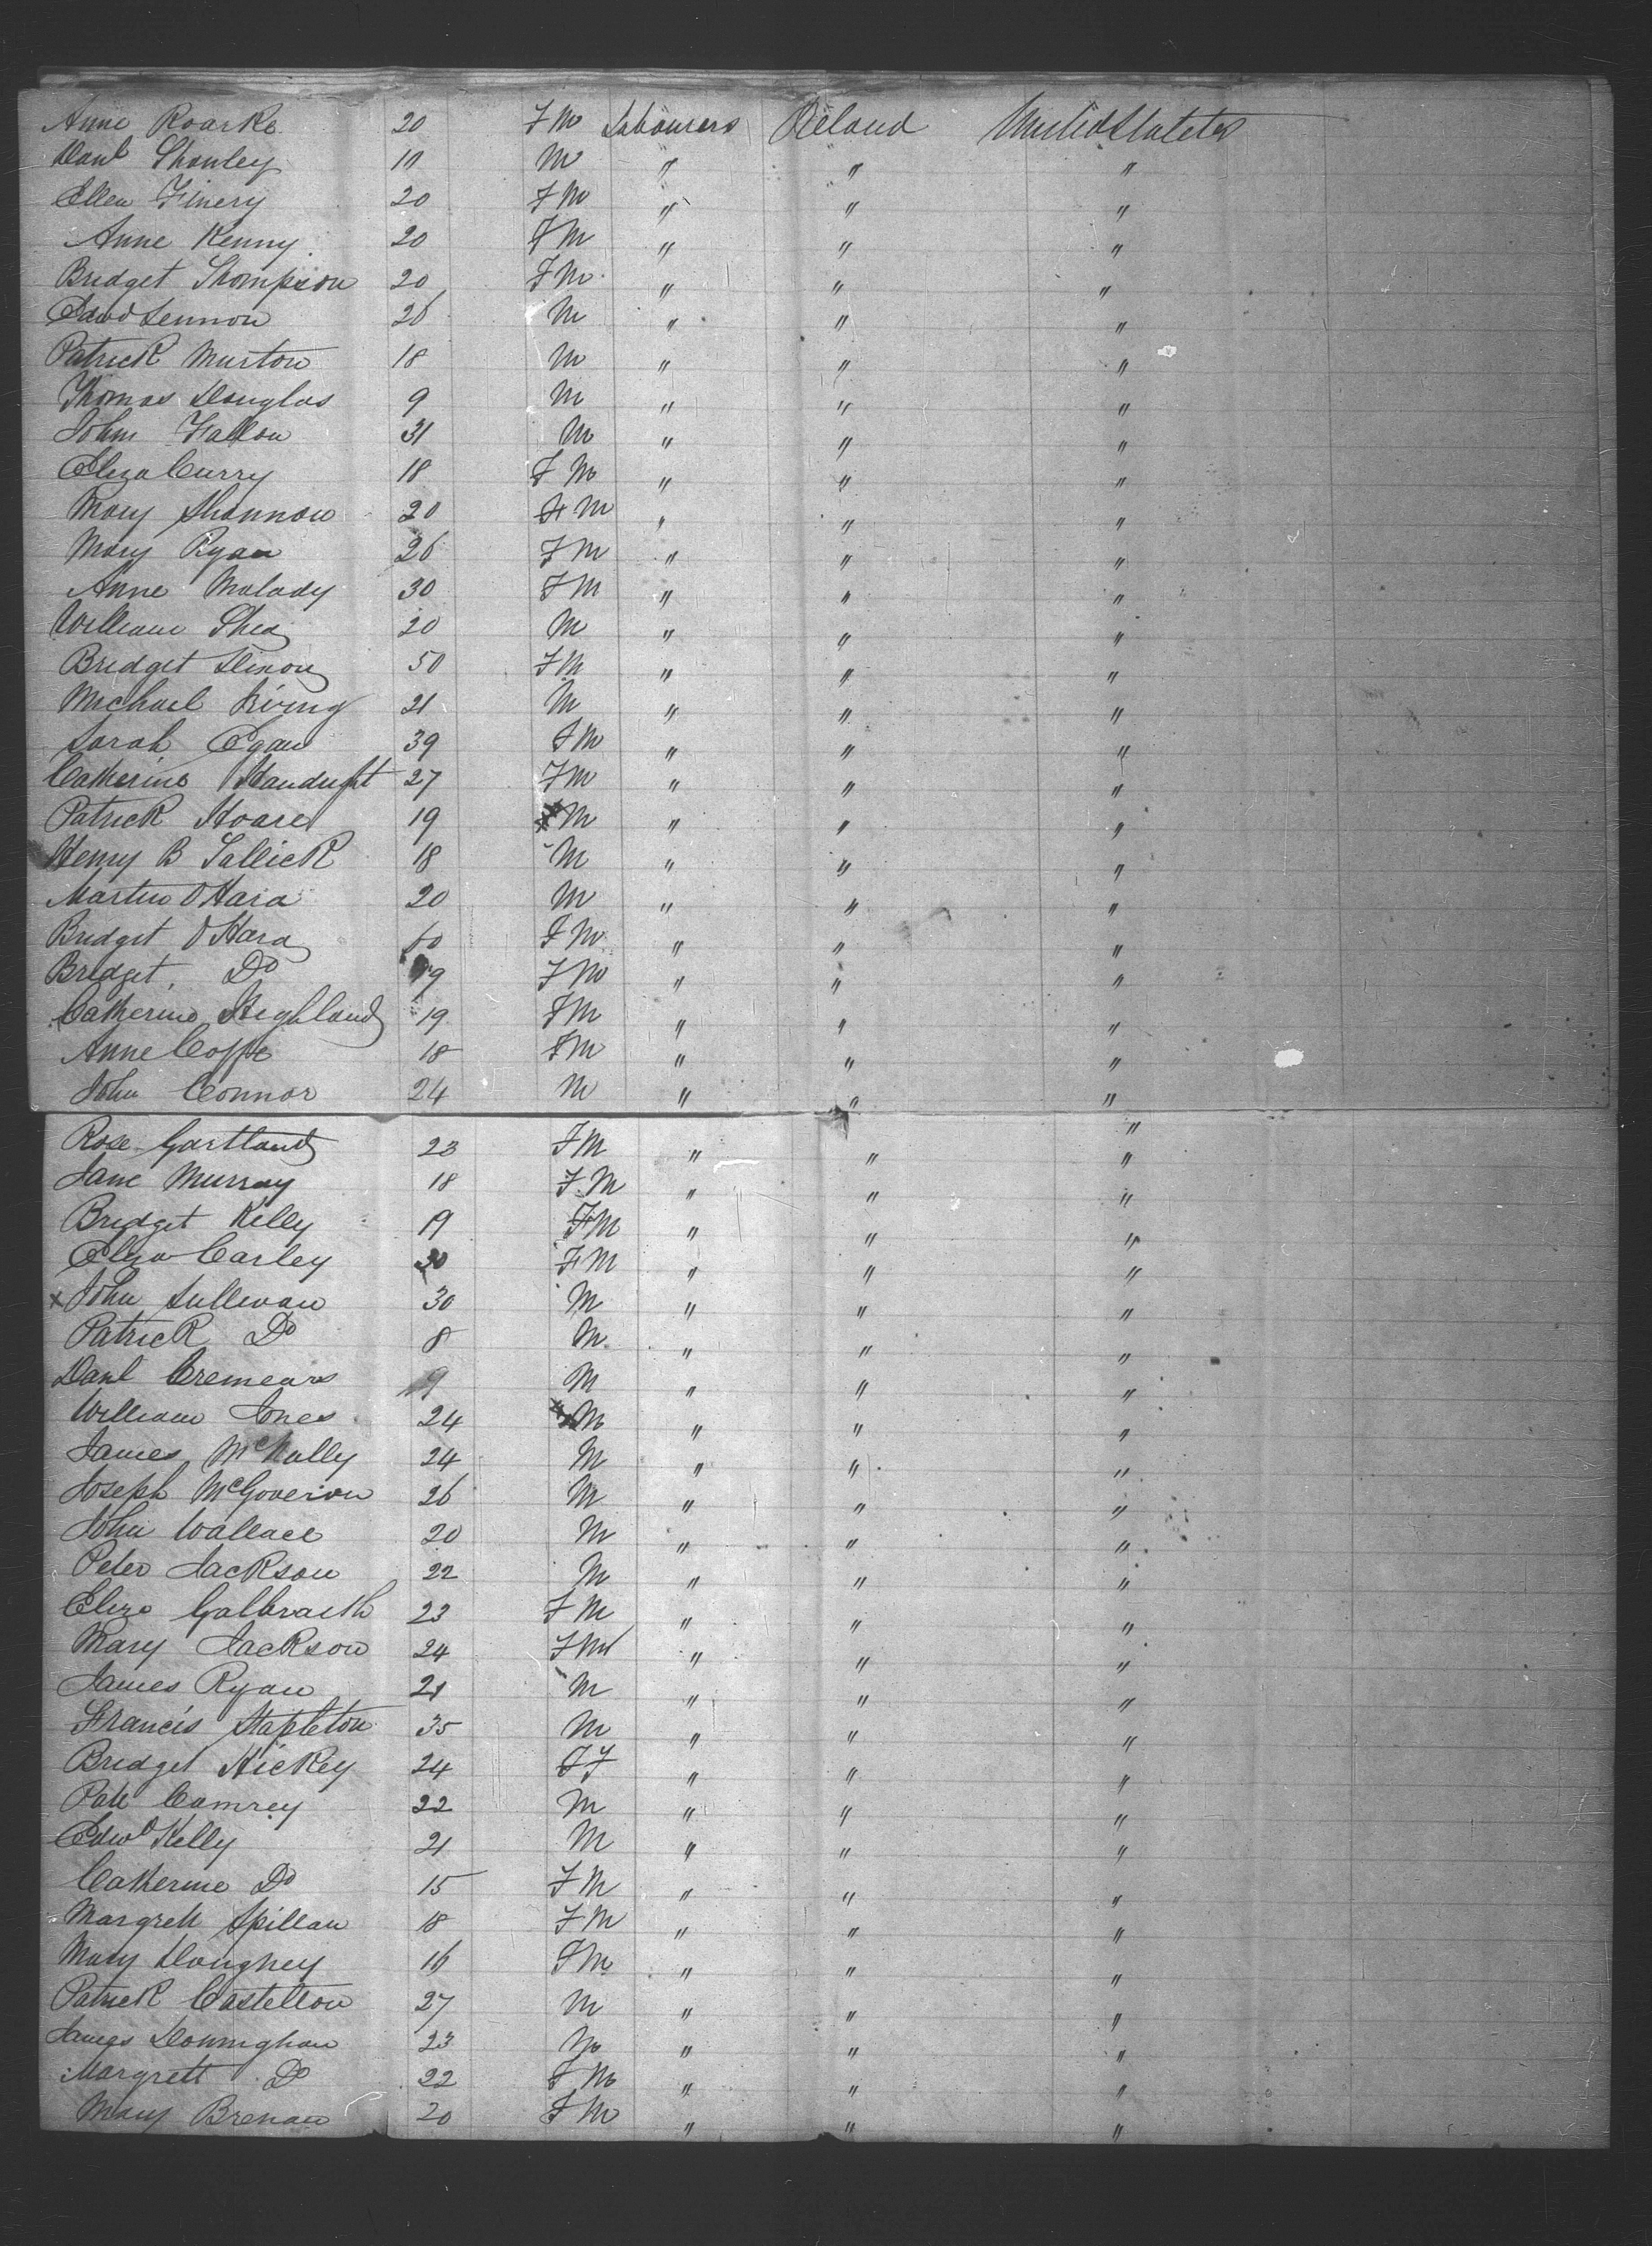 Anne Roarke 20 FM Labourers Ireland United States
Danl Shanley 11 M " " "
Ellen Finery 20 FM " " "
Anne Kenny 20 FM " " "
Bridget Thompson 20 FM " " "
Edwd Lennon 26 M " " "
Patrick Murton 18 M " " "
Thomas Douglas 9 M " " "
John Fallon 31 M " " "
Eliza Curry 18 FM " " "
Mary Shannon 20 FM " " "
Mary Ryan 26 FM " " "
Anne Malady 30 FM " " "
William Shea 20 M " " "
Bridget 50 FM " " "
Michael 21 M " " "
Sarah Egan 39 FM " " "
Catherine 27 FM " " "
Patrick Hoare 19 M " " "
Henry B Tallick 18 M " " "
Martin O Hara 20 M " " "
Bridget O Hara 60 FM " " "
Bridget Do 19 FM " " "
Catherine Highland 19 FM " " "
Anne Coffe 18 FM " " "
John Connor 24 M " " "
"
Rose Gartland 23 FM " " "
Jane Murray 18 FM " " "
Bridget Kelly 19 FM " " "
Eliza Carley 30 FM " " "
x John Sullivan 30 M " " "
Patrick Do 8 M " " "
Danl Cremears 9 M " " "
William Jones 24 M " " "
James McNally 24 M " " "
Joseph McGovern 26 M " " "
John Wallace 20 M " " "
Peter Jackson 22 M " " "
Eliza Galbraith 23 FM " " "
Mary Jackson 24 FM " " "
James Ryan 21 M " " "
Francis Stapleton 35 M " " "
Bridget Hickey 24 FF " " "
Patk Comrey 22 M " " "
Edwd Kelly 21 M " " "
Catherine Do 15 FM " " "
Margrett Spillan 18 FM " " "
Mary Doughney 16 FM " " "
Patrick Castellon 27 M " " "
James Donnighan 23 M " " "
Margrett Do 22 FM " " "
Mary Brenan 20 FM " " "